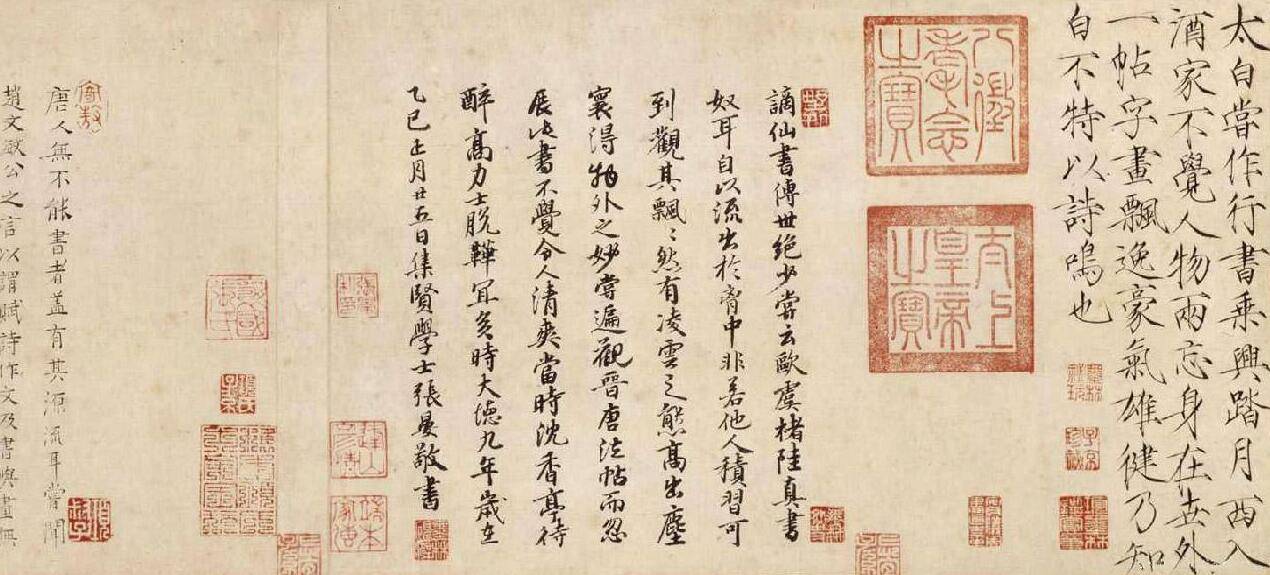 太白嘗作行書乘興踏月西入
酒家不覺人物兩忘身在世外
一帖字畫飄逸豪氣雄健乃知
白不特以詩鳴也
八徵耄念之寶
太上皇帝之寶
謫仙書傳世絕少嘗云歐虞褚陸真書
奴耳自以流出於胷中非若他人積習可
到觀其飄〻然有凌雲之態高出塵
寰得物外之妙嘗遍觀晉唐法帖而忽
展此書不覺令人清爽當時沈香亭待
醉高力士脫鞾冝矣時大德九年歲在
乙巳正月廿五日集賢學士張晏敬書
唐人無不能書者蓋有其源流耳嘗聞
趙文敏公之言以謂賦詩作文及書與畫無